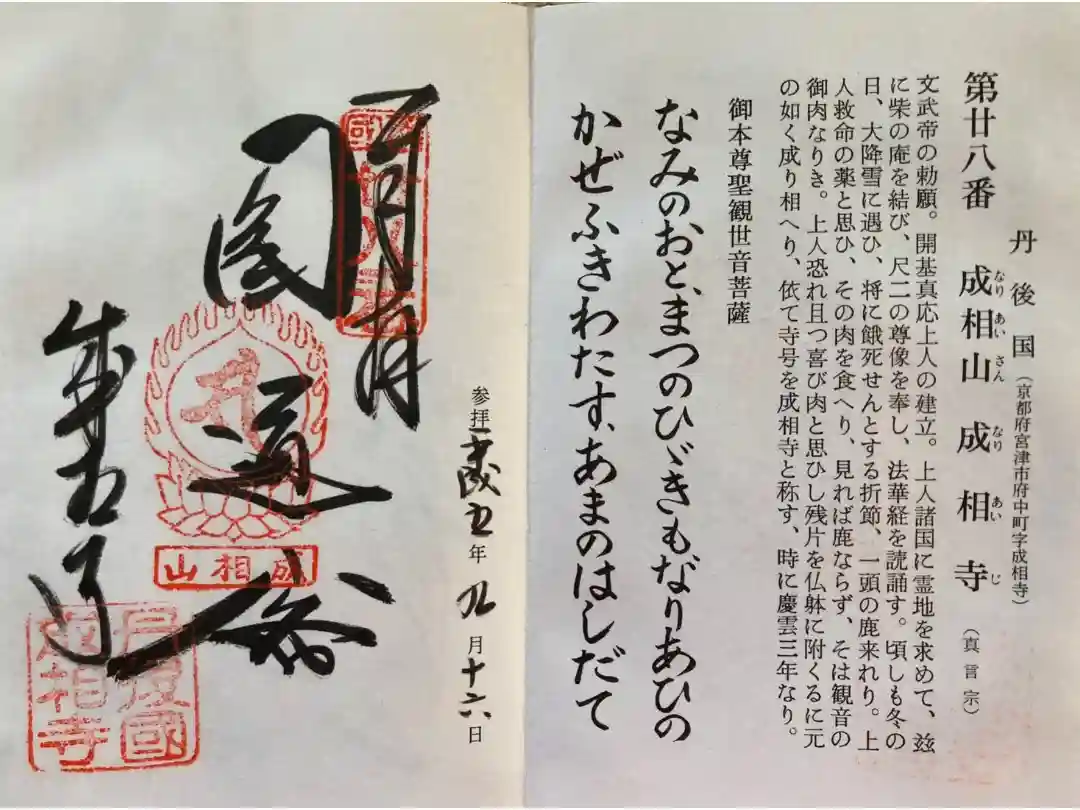 丹後国(京都府宮津市府中町字成相寺)
第廿八番 成相山成相寺(真言宗)
なり あい さん なり あい じ
文武帝の勅願。開基真応上人の建立。上人諸国に霊地を求めて、茲
に柴の庵を結び、尺二の尊像を奉し、法華経を読誦す。頃しも冬の
日、大降雪に遇ひ、将に餓死せんとする折節、一頭の鹿来れり。上
人救命の薬と思ひ、その肉を食へり、見れば鹿ならず、そは観音の
御肉なりき。上人恐れ且つ喜び肉と思ひし残片を仏躰に附くるに元
の如く成り相へり、依て寺号を成相寺と称す、時に慶雲三年なり。
御本尊聖観世音菩薩
なみのおと、まつのひゞきもなりあひの
かぜふきわたす、あまのはしだて
参拝 平成五年 九月十六日
西國廿八番
圓通
成相山
成相寺
丹後國
成相寺